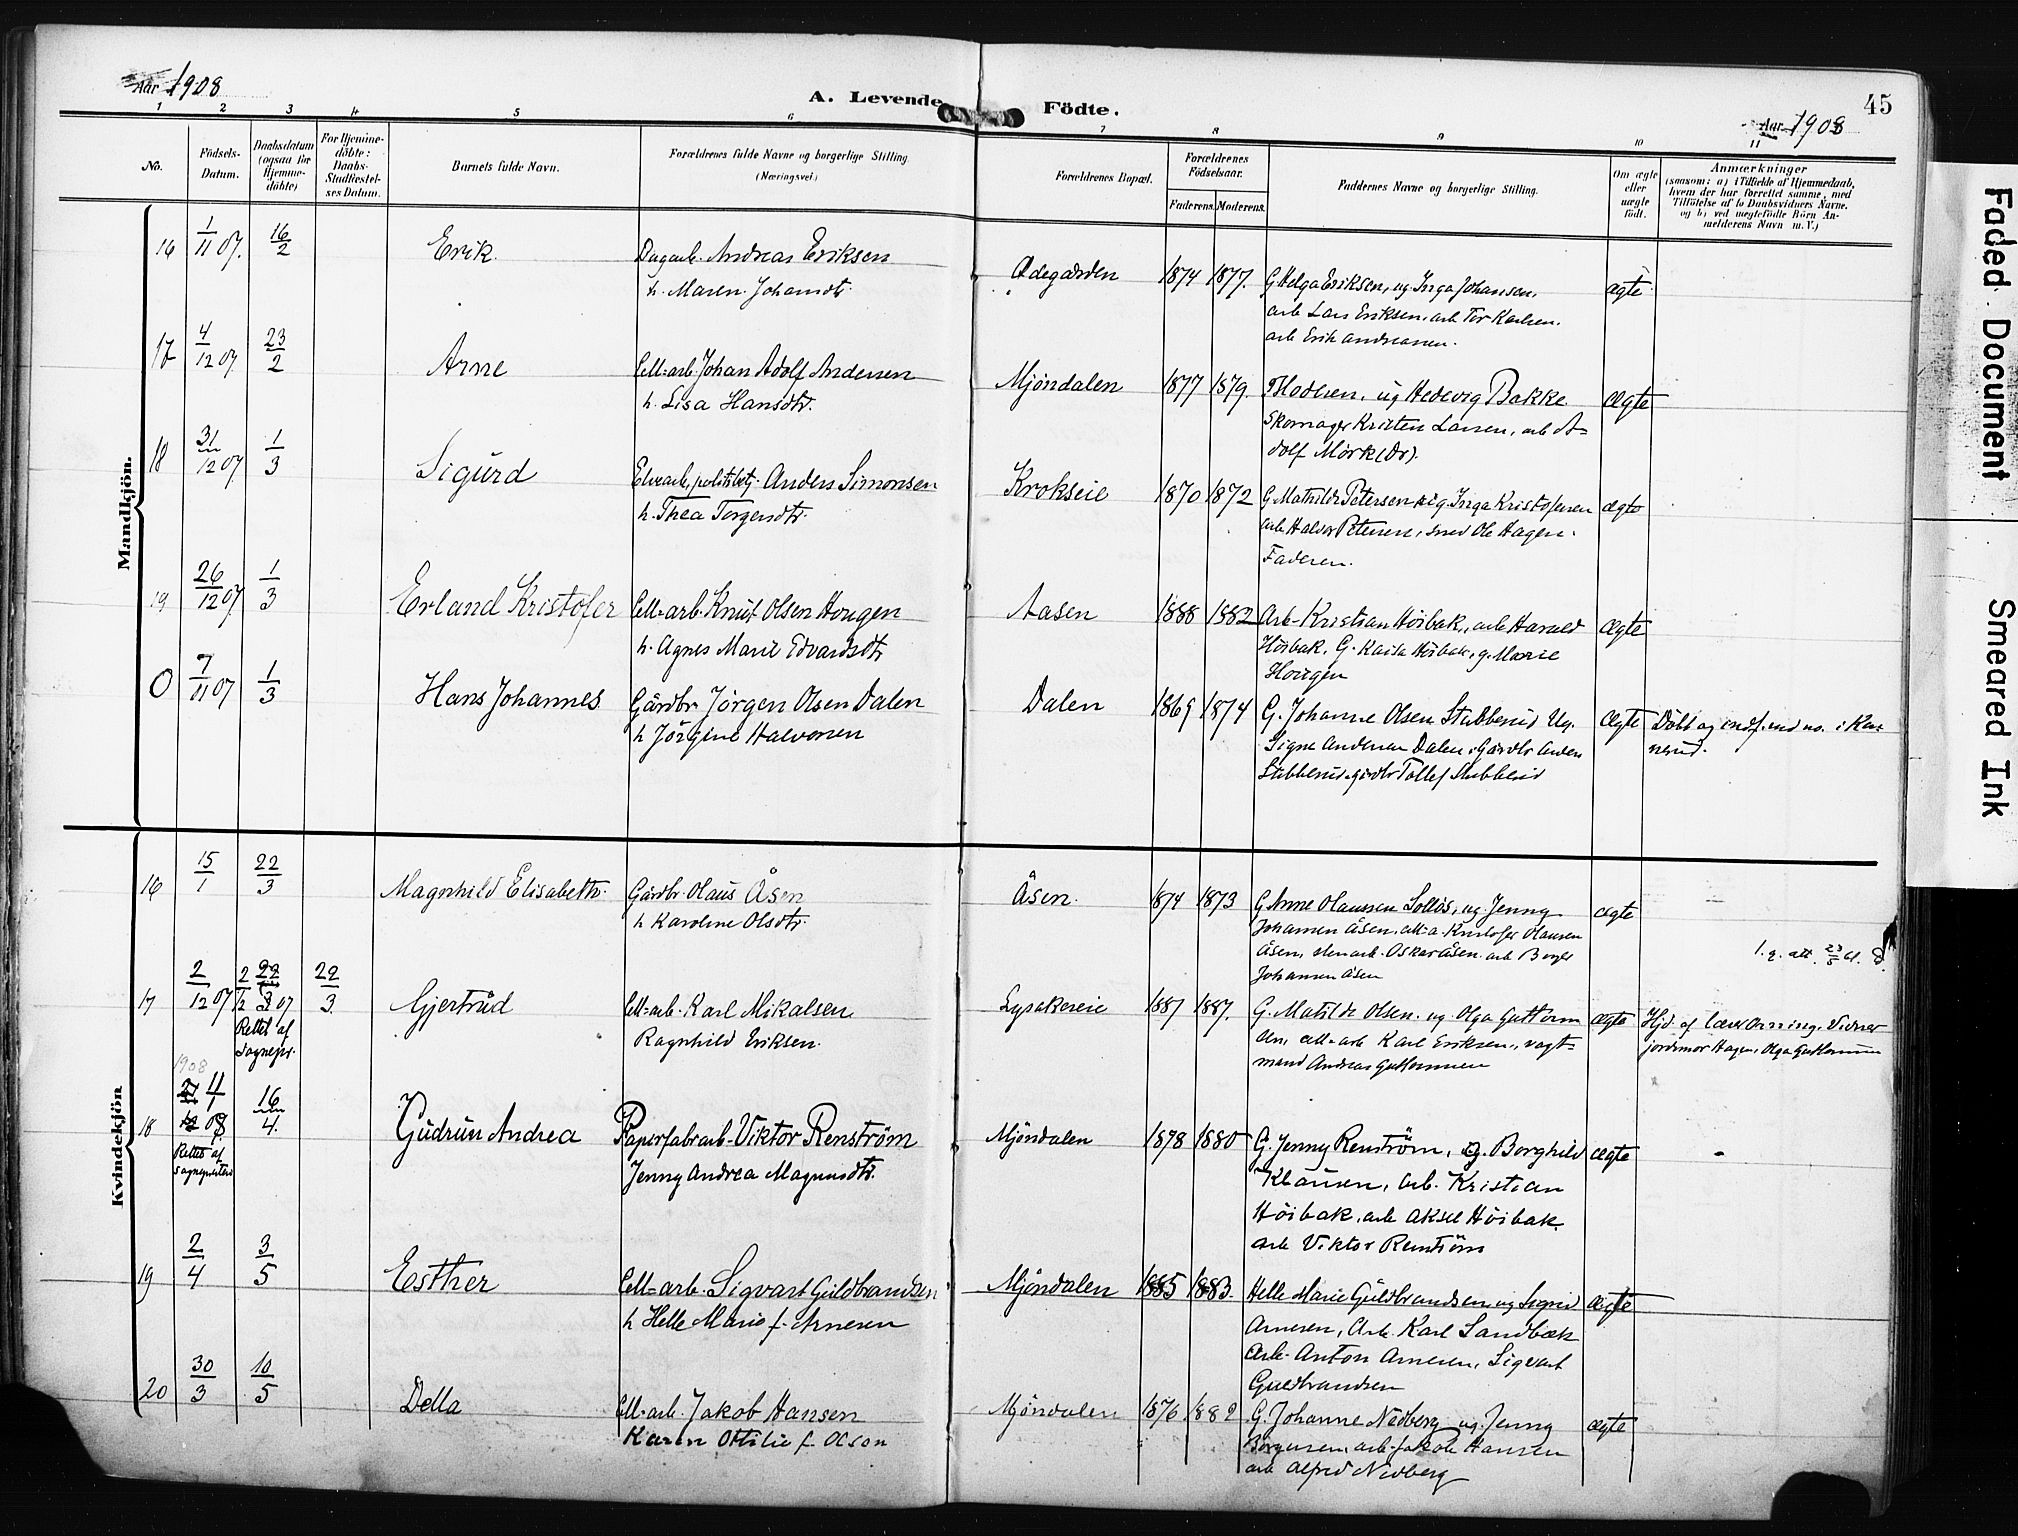 Aar 1908
A. Levende Födte.
Aar 1908
45
1 2 3 4 5 6 7 8 9 10 11
No.
Födsels-Datum.
Daabsdatum (ogsaa for Hjemme-döbte)
For Hjemme-döbte: Daabs-Stadfestel-ses Datum.
Barnets fulde Navn.
Forældrenes fulde Navne og borgerlige Stilling. (Næringsvei.)
Forældrenes Bopæl.
Forældrenes Födselsaar.
Faderens. Moderens.
Faddernes Navne og borgerlige Stilling.
Om ægte eller uægte födt.
Anmærkninger
(saasom: a) i Tilfælde af Hjemmedaab,
hvem der har forrettet samme, med
Tilföielse af to Daabsvidners Navne.
og b) ved uægtefödte Börn An-
melderens Navn m. V.)
Mandkjön.
16 1/11 07. 16/2 Erik. Dagarb. Andreas Eriksen Ødegården 1874 1877. G Helga Eriksen, ug Inga Johansen, ægte
h. Maren Johansdtr. arb Lars Eriksen, arb Tor Karlsen.
arb Erik Andreasen.
17 4/12 07 23/2 Arne Cell-arb. Johan Adolf Andersen Mjöndalen 1877 1879. Madsen, ug Hedevig Bakke ægte
h. Lisa Hansdtr. Skomager Kristen Larsen, arb A=
dolf Mörk (Dr).
18 31/12 07 1/3 Sigurd Elvearb, politibetj. Anders Simonsen Krokseie 1870 1872 G. Mathilde Petersen, ug. Inga Kristofersen ægte
h. Thea Torgersdtr. arb Halvor Petersen, smed Ole Hagen.
Faderen.
19 26/12 07 1/3 Erland Kristofer Cell=arb. Knut Olsen Hougen Aasen 1888 1882 Arb. Kristian Höibak, arb Harald ægte
h. Agnes Marie Edvardsdtr Höibak, G. Kaisa Höibak, g. Marie
Hougen
0 7/11 07 1/3 Hans Johannes Gårdbr Jörgen Olsen Dalen Dalen 1869 1874 G. Johanne Olsen Stubberud Ug. ægte Döbt og indf. und no. i Kon-
h Jörgine Halvorsen Signe Andersen Dalen, Gårdbr Anders nerud.
Stubberud, gårdbr Tollef Stubberud
Kvindekjön
16 15/1 22/3 Magnhild Elisabeth. Gårdbr. Olaus Åsen Åsen. 1874 1873 G Anne Olaussen Solløs, ug. Jenny ægte
h Karoline Olsdtr. Johansen Åsen, cell-a. Kristofer Olausen
Åsen, elvearb. Oskar Åsen. arb Birger
Johansen Åsen
1. g. att. 23/5 41.
17 2/12 07 2/12 07 22/3 22/3. Gjertrud Cell-arb. Karl Mikalsen Lysakereie 1887 1887. G. Matilde Olsen. ug. Olga Guttorm ægte Hjd. af lærer Orning. Vidner
Rettet af Sognepr. Ragnhild Eriksen. sen, cell=arb Karl Eriksen, vagt= jordmor Hagen, Olga Guttormsen
mand Andreas Guttormsen
1908
18 4/1 08 16/4. Gudrun Andrea Papirfabarb. Viktor Renström Mjöndalen 1878 1880 G. Jenny Renström, Ug. Borghild ægte
Rettet af sognepresten Jenny Andrea Magnusdtr. Klausen, Arb. Kristian
Höibak, arb Aksel Höibak.
arb Viktor Renström
19 2/4 3/5 Esther Cell=arb. Sigvart Guldbrandsen Mjöndalen 1885 1883. Helle Marie Guldbrandsen ug Sigrid ægte
h Helle Marie f. Arnesen Arnesen, Arb. Karl Sandbæk
Arb. Anton Arnesen, Sigvart
Guldbrandsen
20 30/3 10/5 Della Cell=arb. Jakob Hansen Mjöndalen 1876 1882 G. Johanne Nedberg ug. Jenny ægte
Karen Ottilie f. Olson Börgersen, arb. Jakob Hansen
arb Alfred Nedberg
Faded Document Smeared Ink